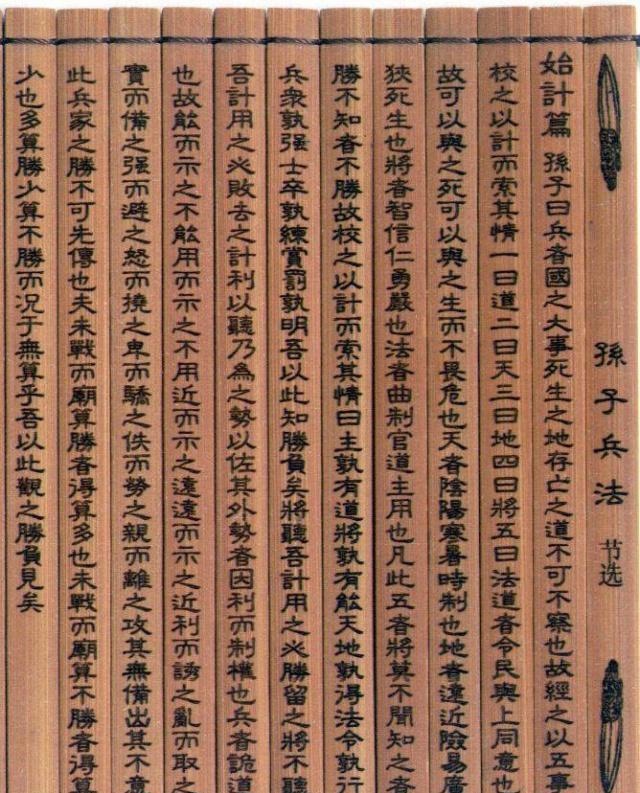 孫子兵法 节选
始計篇 孫子曰兵者國之大事死生之地存亡之道不可不察也故經之以五事
校之以計而索其情一曰道二曰天三曰地四曰將五曰法道者令民與上同意也
故可以與之死可以與之生而不畏危也天者陰陽寒暑時制也地者遠近險易廣
狹死生也將者智信仁勇嚴也法者曲制官道主用也凡此五者將莫不聞知之者
勝不知者不勝故校之以計而索其情曰主孰有道將孰有能天地孰得法令孰行
兵衆孰强士卒孰練賞罰孰明吾以此知勝負矣將聽吾計用之必勝留之將不聽
吾計用之必敗去之計利以聽乃為之勢以佐其外勢者因利而制權也兵者詭道
也故能而示之不能用而示之不用近而示之遠遠而示之近利而誘之亂而取之
實而備之强而避之怒而撓之卑而驕之佚而勞之親而離之攻其無備出其不意
此兵家之勝不可先傳也夫未戰而廟算勝者得算多也未戰而廟算不勝者得算
少也多算勝少算不勝而况于無算乎吾以此觀之勝負見矣